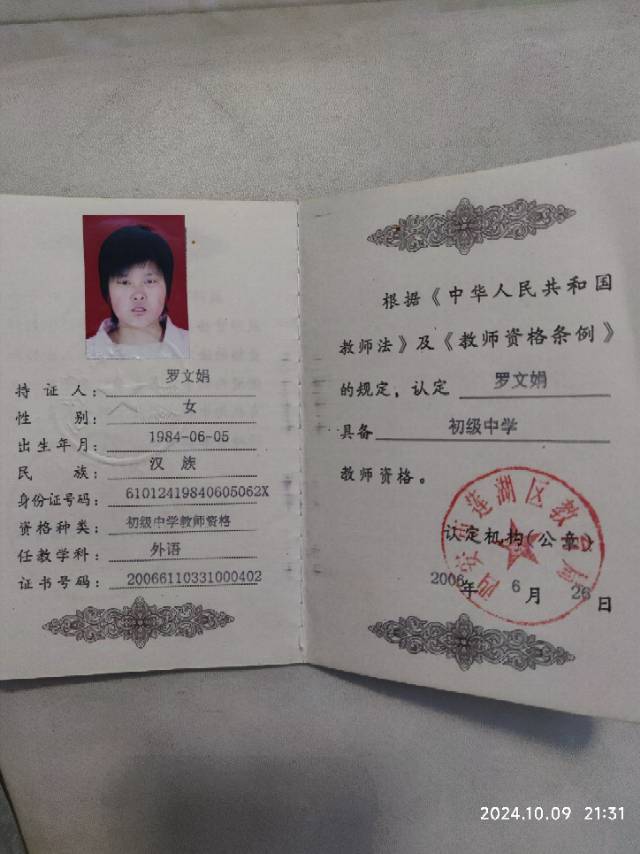 持 证 人： 罗文娟
性 别： 女
出生年月： 1984-06-05
民 族： 汉 族
身份证号码： 61012419840605062X
资格种类： 初级中学教师资格
任教学科： 外语
证书号码： 20066110331000402
根据《中华人民共和国
教师法》及《教师资格条例》
的规定，认定 罗文娟
具备 初级中学
教师资格。
西安市莲湖区教育局
认定机构(公章)
2006年 6 月 26 日
2024.10.09 21:31